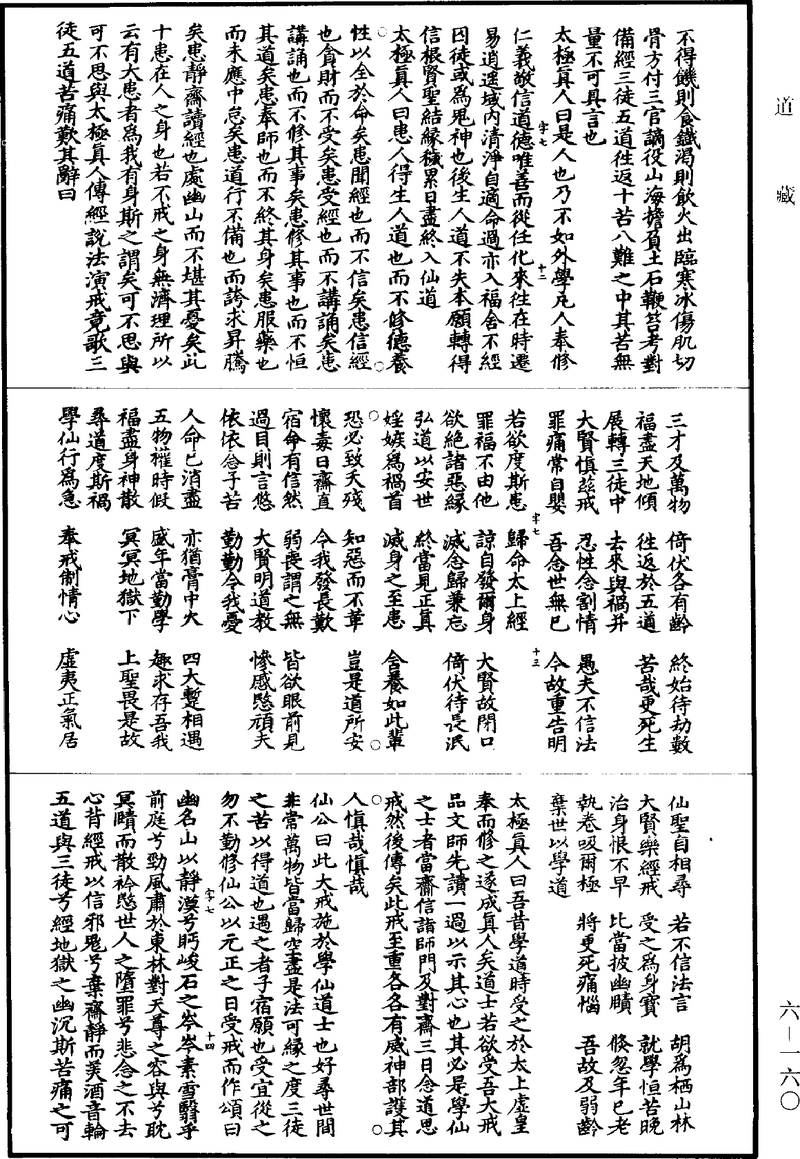 道藏
不得饑則食鐵渴則飲火出臨寒冰傷肌切
骨方付三官謫役山海擔負土石鞭笞考對
備經三徒五道往返十苦八難之中其苦無
量不可具言也
太極真人曰是人也乃不如外學凡人奉修
字七 十二
仁義敬信道德唯善而從任化來往在時遷
易逍遥域內清淨自適命過亦入福舍不經
囚徒或為鬼神也後生人道不失本願轉得
信根賢聖結緣穢累日盡終入仙道
太極真人曰患人得生人道也而不修德養
性以全於命矣患聞經也而不信矣患信經
也貪財而不受矣患受經也而不講誦矣患
講誦也而不修其事矣患修其事也而不恒
其道矣患奉師也而不終其身矣患服藥也
而未應中怠矣患道行不備也而誇求昇騰
矣患靜齋讀經也處幽山而不堪其憂矣此
十患在人之身也若不戒之身無濟理所以
云有大患者為我有身斯之謂矣可不思與
可不思與太極真人傳經說法演戒竟歌三
徒五道苦痛歎其辭曰
三才及萬物 倚伏各有齡 終始待劫數
福盡天地傾 往返於五道 苦哉更死生
展轉三徒中 去來與禍并 愚夫不信法
大賢慎茲戒 忍性念割情 今故重告明
罪痛常自嬰 吾念世無已
字七 十三
若欲度斯患 歸命太上經 大賢故閉口
罪福不由他 諒自發爾身 倚伏待長泯
欲絕諸惡緣 滅念歸兼忘
弘道以安世 終當見正真 舍養如此輩
婬嫉為禍首 滅身之至患
恐必致夭殘 知惡而不革 豈是道所安
懷毒日齋直 令我發長歎
宿命有信然 弱喪謂之無 皆欲眼前見
過目則言悠 大賢明道教 慘慼愍頑夫
依依念子苦 勤勤令我憂
人命已消盡 亦猶膏中火 四大蹔相遇
五物權時假 盛年當勤學 趣求存吾我
福盡身神散 冥冥地獄下 上聖畏是故
尋道度斯禍
學仙行為急 奉戒制情心 虛夷正氣居
仙聖自相尋 若不信法言 胡為栖山林
大賢樂經戒 受之為身寶 就學恒苦晚
治身恨不早 比當披幽賾 倏忽年已老
執卷吸爾極 將更死痛惱 吾故及弱齡
棄世以學道
太極真人曰吾昔學道時受之於太上虛皇
奉而修之遂成真人矣道士若欲受吾大戒
品文師先讀一過以示其心也其必是學仙
之士者當齋信詣師門及對齋三日念道思
戒然後傳矣此戒至重各各有威神部護其
人慎哉慎哉
仙公曰此大戒施於學仙道士也好尋世間
非常萬物皆當歸空盡是法可緣之度三徒
之苦以得道也遇之者子宿願也受宜從之
勿不勤修仙公以元正之日受戒而作頌曰
字七 十四
幽名山以靜漠兮眄峻石之岑岑素雪翳乎
前庭兮勁風肅於東林對天尊之容與兮耽
冥賾而散衿愍世人之墮罪兮悲念之不去
心背經戒以信邪鬼兮棄齋靜而羙酒音輪
五道與三徒兮經地獄之幽沉斯苦痛之可
六一一六〇